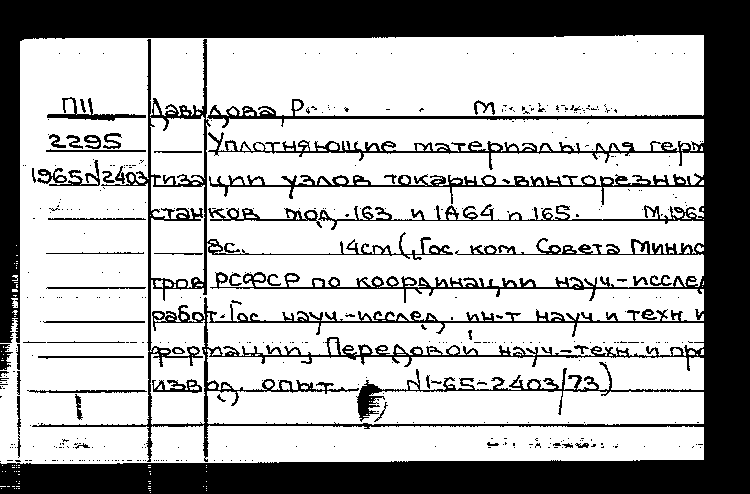 ПII Давыдова, Р
2295 Уплотняющие материалы для герм
1965N2403 тизации узлов токарно-винторезных
станков мод. 163 и 1А64 и 165. М, 1965
8с. 14см (Гос. ком. Совета Минис
тров РСФСР по координации науч.-исслед
работ. Гос. науч.-исслед. ин-т науч. и техн. и
формации, Передовой науч.-техн. и про
извод. опыт. N1-65-2403/73)
1